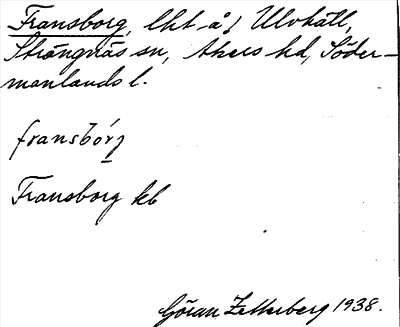 Fransborg, lht å f Ulvhäll,
Strängnäs sn, Åkers hd, Söder-
manlands l.
fransbórj
Fransborg kb
Göran Zetterberg 1938.